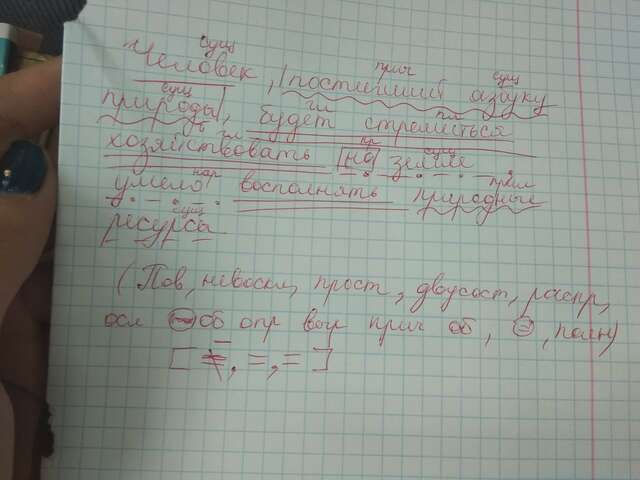 сущ
Человек, постигший азбуку
прич сущ
сущ гл гл
природы, будет стремиться
гл пр сущ
хозяйствовать на земле
нар прил
умело восполнять природные
сущ
ресурсы
(Пов, невоскл, прост, двусост, распр,
осл об опр выр прич об, =, полн)
[ -, =, = ]